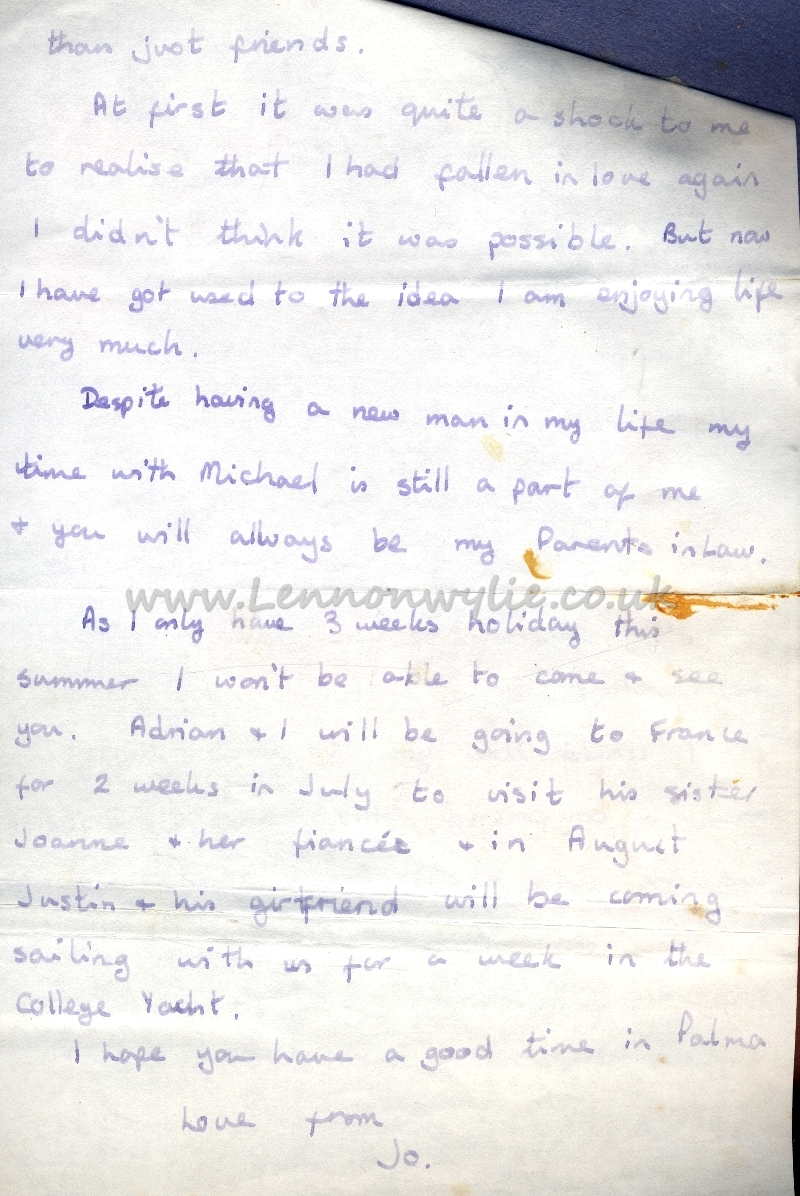 than just friends.
At first it was quite a shock to me
to realise that I had fallen in love again
I didn't think it was possible. But now
I have got used to the idea I am enjoying life
very much.
Despite having a new man in my life my
time with Michael is still a part of me
+ you will always be my Parents inLaw.
www.Lennonwylie.co.uk
As I only have 3 weeks holiday this
summer I won't be able to come + see
you. Adrian + I will be going to France
for 2 weeks in July to visit his sister
Joanne + her fiancée + in August
Justin + his girlfriend will be coming
sailing with us for a week in the
College Yacht.
I hope you have a good time in Palma
Love from
Jo.